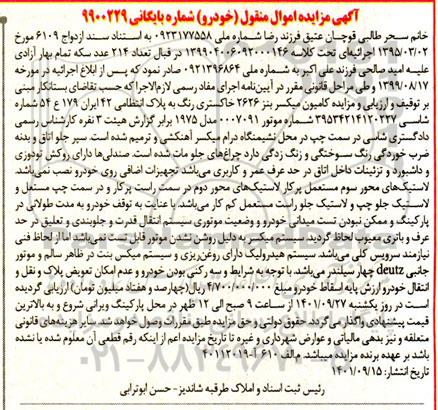 آگهی مزایده اموال منقول (خودرو) شماره بایگانی ۹۹۰۰۲۲۹
خانم سحر طالبی قوچان عتیق فرزند رضا شماره ملی ۰۹۲۳۱۷۷۵۵۸ به استناد سند ازدواج ۶۱۰۹ مورخ
۱۳۹۵/۰۳/۰۲ اجرائیه‌ای تحت کلاسه ۱۳۹۹۰۴۰۰۶۰۹۲۰۰۰۱۴۶ در قبال تعداد ۲۱۴ عدد سکه تمام بهار آزادی
علیه امید صالحی فرزند علی اکبر به شماره ملی ۰۹۲۱۳۹۶۸۶۴ صادر نمود که پس از ابلاغ اجرائیه در مورخه
۱۳۹۹/۰۸/۱۷ و طی مراحل قانونی مقرر در آیین‌نامه اجرای مفاد رسمی لازم‌الاجرا که حسب تقاضای بستانکار مبنی
بر توقیف و ارزیابی و مزایده کامیون میکسر بنز ۲۶۲۶ خاکستری رنگ به پلاک انتظامی ۴۲ ایران ۱۷۹ ع ۵۴ شماره
شاسی ۳۹۵۳۴۲۱۴۱۲۰۲۲۷ شماره موتور ۰۰۰۷۰۹۱ مدل ۱۹۷۵ برابر گزارش هیئت ۳ نفره کارشناس رسمی
دادگستری شاسی در سمت چپ در محل نشیمنگاه درام میکسر آهنکشی و ترمیم شده است. سپر جلو اتاق و بدنه
ضرب خوردگی رنگ سوختگی و زنگ زدگی دارد چراغ‌های جلو مات شده است. صندلی‌ها دارای روکش تودوزی
و داشبورد و تزئینات داخل اتاق در حد عرف عمر و کاربری می‌باشد تجهیزات اضافی روی خودرو نصب نمی‌باشد.
لاستیک‌های محور سوم مستعمل پرکار لاستیک‌های محور دوم در سمت راست پرکار و در سمت چپ مستعمل و
لاستیک جلو چپ و لاستیک جلو راست مستعمل کم کار می‌باشد. با عنایت به توقف خودرو به مدت طولانی در
پارکینگ و ممکن نبودن تست میدانی خودرو و وضعیت موتوری سیستم انتقال قدرت و جلوبندی و تعلیق در حد
عرف و باتری معیوب لحاظ گردید. سیستم میکسر به دلیل روشن نشدن موتور قابل تست نمی‌باشد اما از لحاظ فنی
نیازمند سرویس کلی می‌باشد. سیستم هیدرولیک دارای روغن‌ریزی و سیستم میکس بنت در ظاهر سالم و موتور
جانبی deutz چهار سیلندر می‌باشد. با توجه به شرایط و به رکنی بودن خودرو و عدم امکان تعویض پلاک و نقل و
انتقال خودرو ارزش پایه اسقاط خودرو مبلغ ۴/۷۰۰/۰۰۰/۰۰۰ ریال (چهارصد و هفتاد میلیون تومان) ارزیابی گردیده
است در روز یکشنبه ۱۴۰۱/۰۹/۲۷ از ساعت ۹ صبح الی ۱۲ ظهر در محل پارکینگ ویرانی شروع و به بالاترین
قیمت پیشنهادی واگذار می گردد. حقوق دولتی و حق مزایده طبق مقررات وصول خواهد شد. سایر هزینه‌های قانونی
متعلقه و نیز بدهی مالیاتی و عوارض شهرداری و غیره تا تاریخ مزایده اعم از اینکه رقم قطعی آن معلوم شده یا نشده
باشد بر عهده برنده مزایده میباشد. م الف ۶۱۰ آ-۴۰۱۱۲۰۱۹
تاریخ انتشار: ۱۴۰۱/۰۹/۱۵
رئیس ثبت اسناد و املاک طرقبه شاندیز- حسن ابوترابی